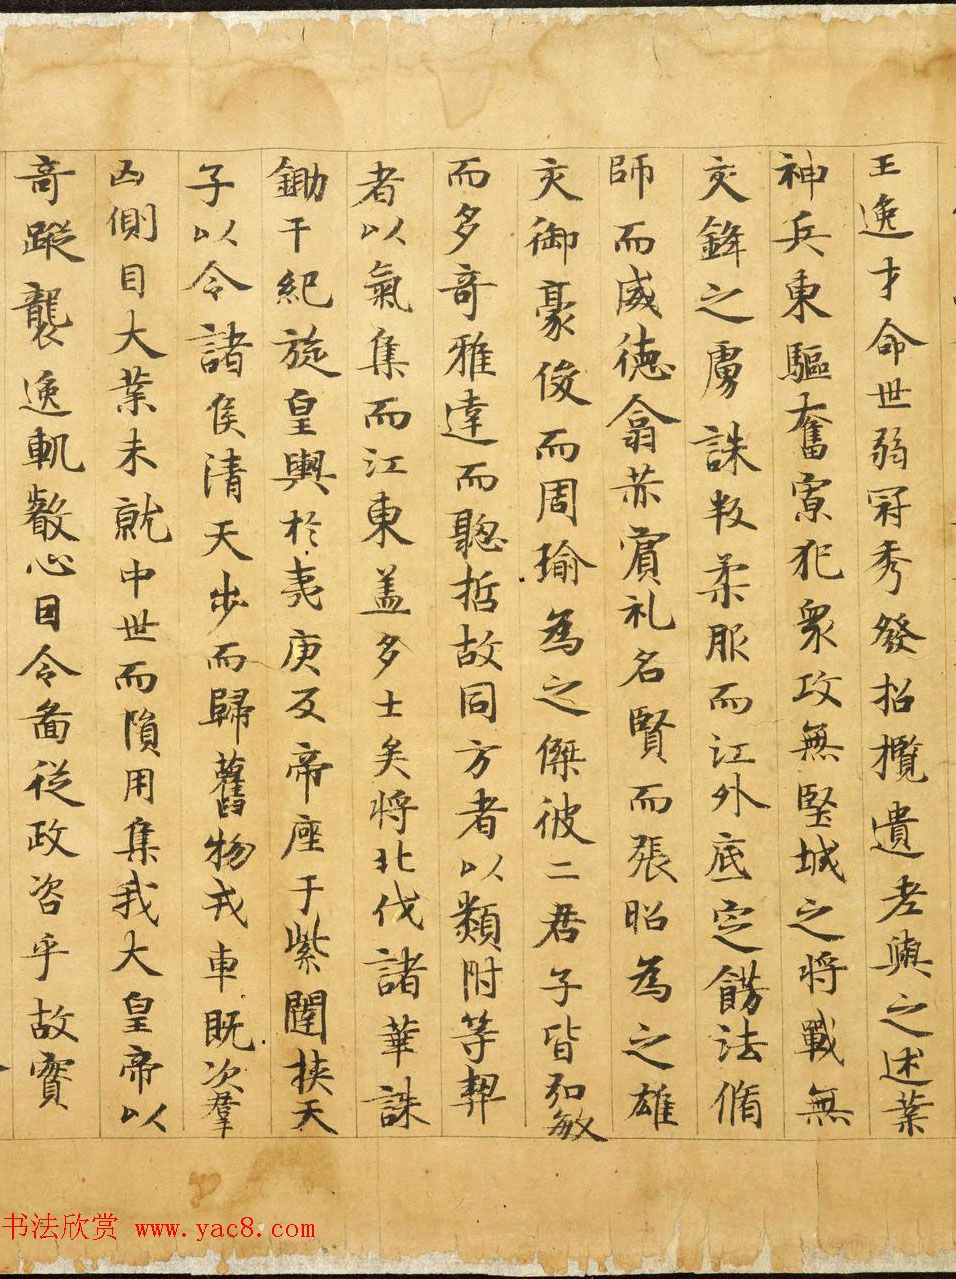 王逸才命世弱冠秀發招攬遺老與之述業
神兵東驅奮寡犯衆攻無堅城之将戰無
交鋒之虜誅叛柔服而江外底定飾法脩
師而威德翕赫賓礼名賢而張昭為之雄
交御豪俊而周瑜為之傑彼二君子皆弘敏
而多奇雅達而聡哲故同方者以類附等契
者以氣集而江東盖多士矣将北伐諸華誅
鋤干紀旋皇輿於夷庚反帝座于紫闥挾天
子以令諸侯清天步而歸舊物戎車既次羣
凶側目大業未就中世而隕用集我大皇帝以
奇蹤襲逸軌叡心因令啚從政咨乎故實
书法欣赏 www.yac8.com